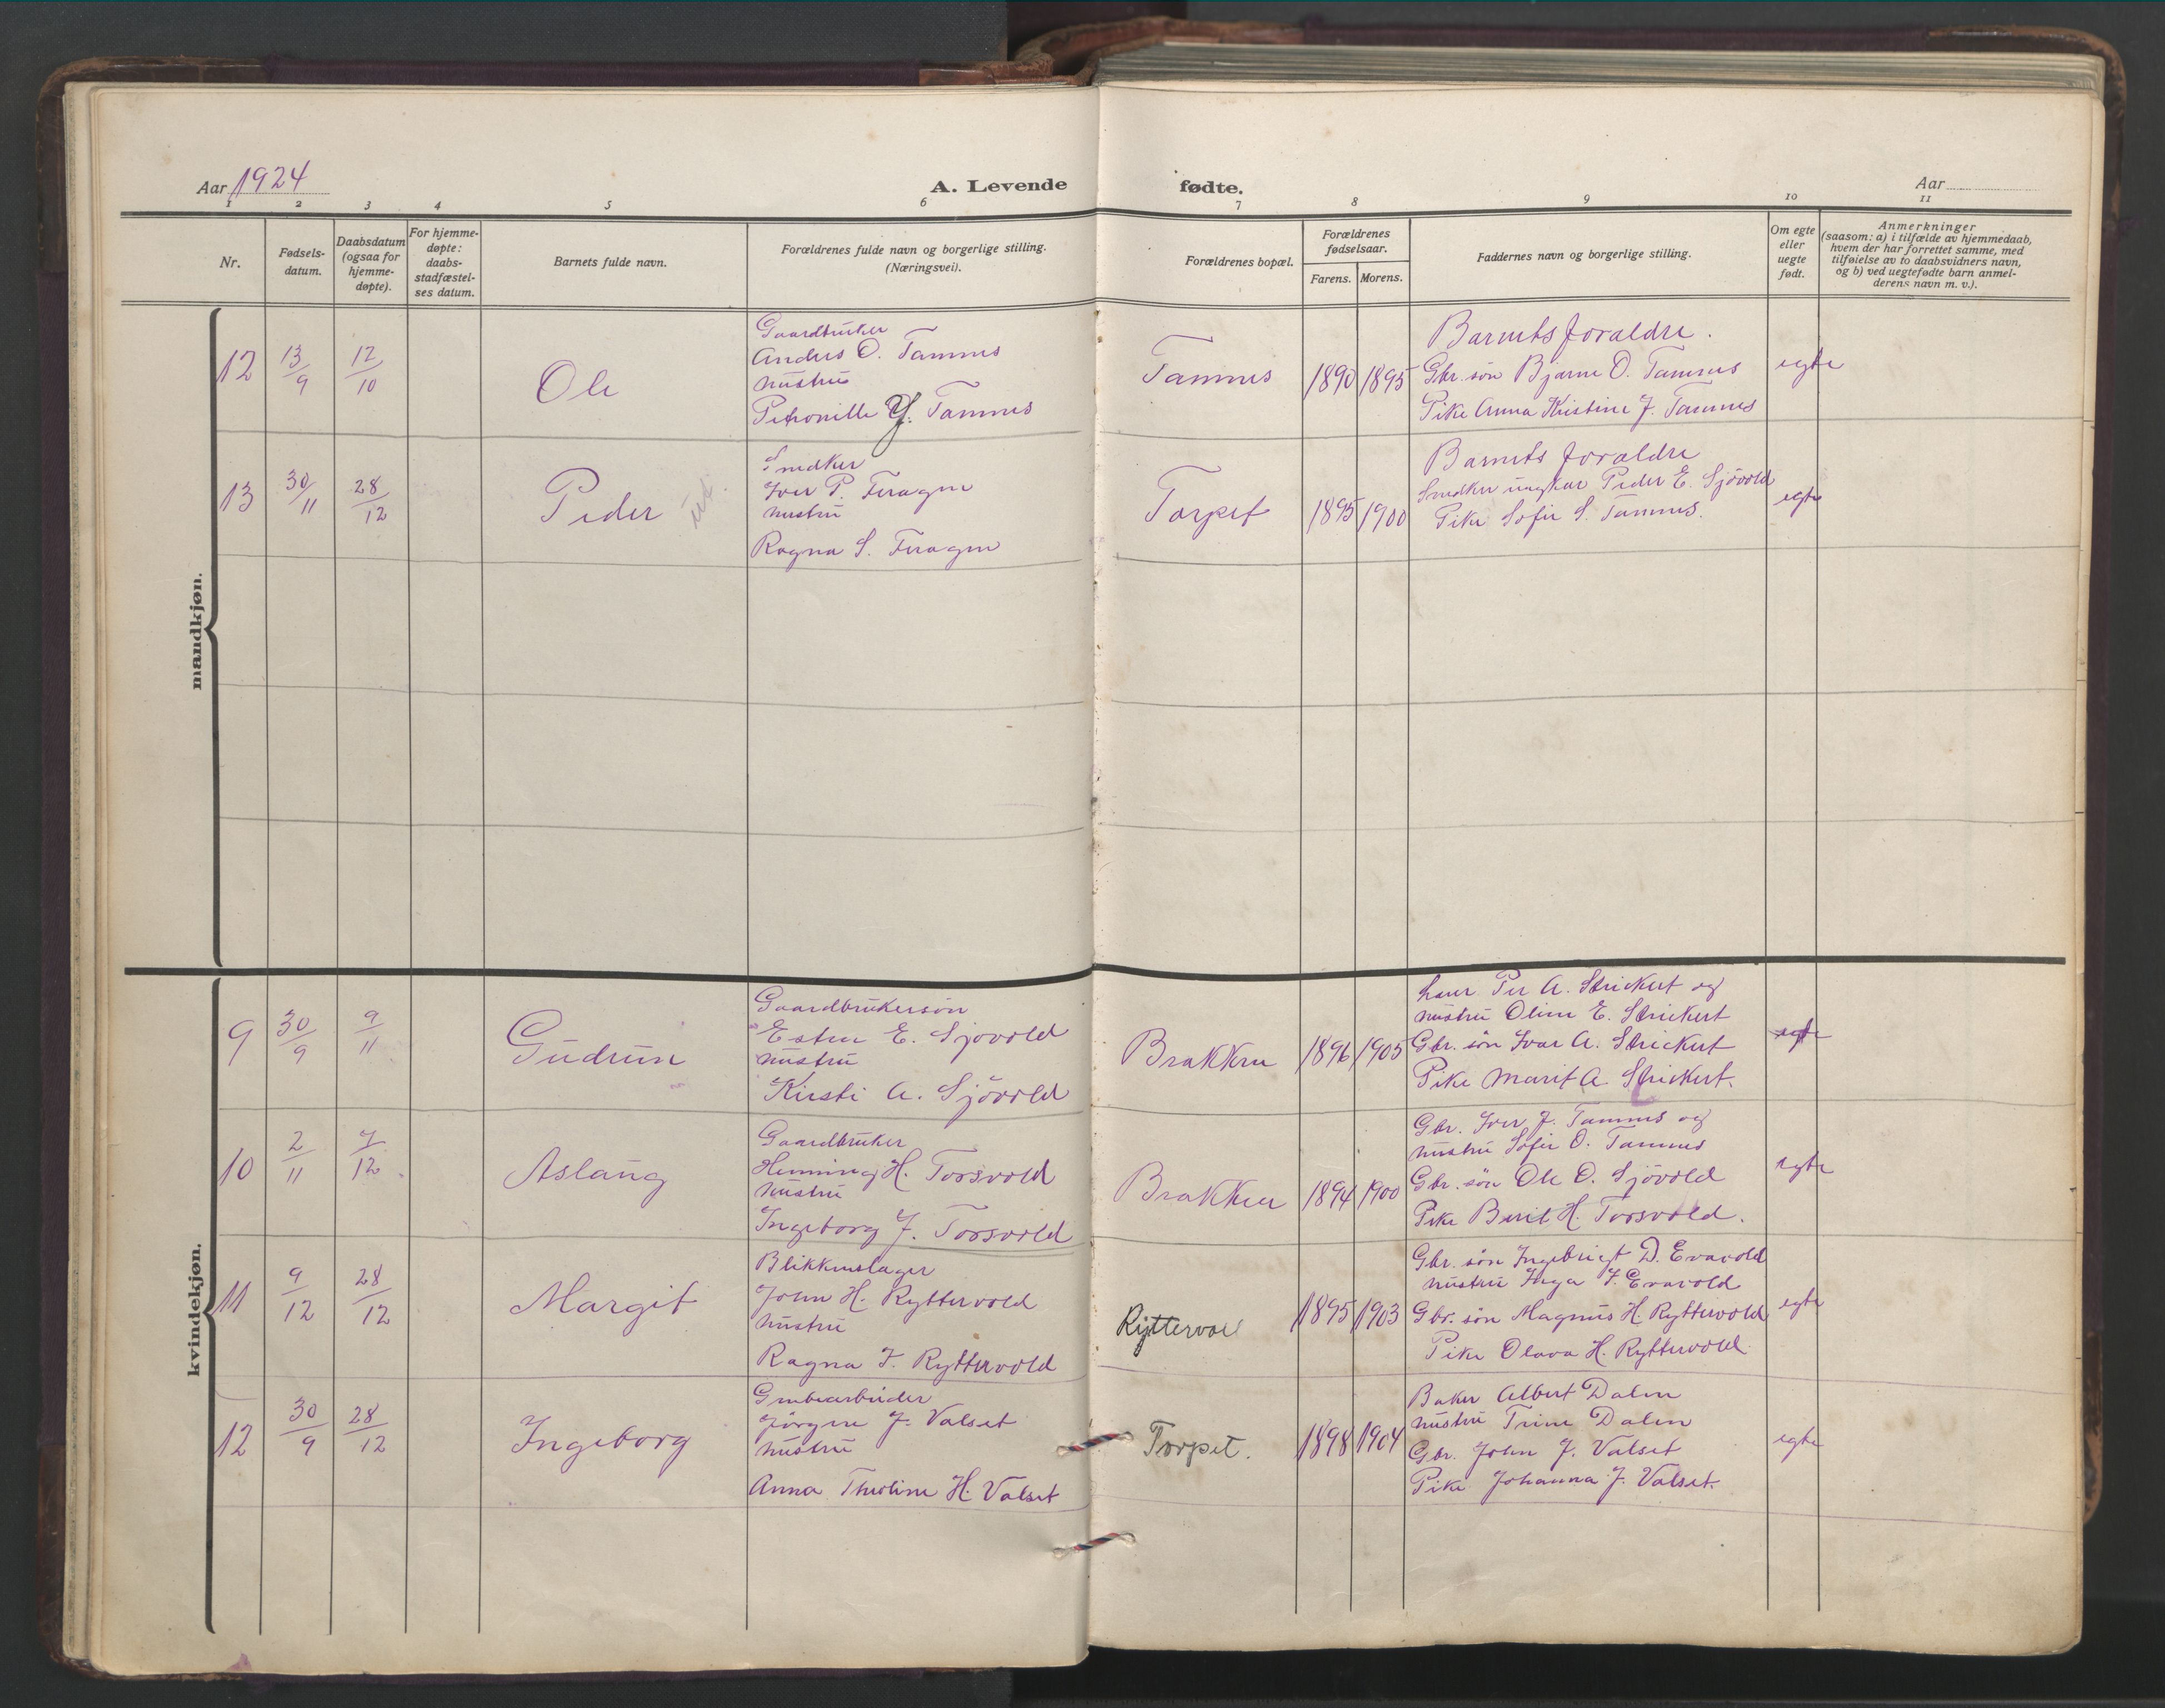 Aar 1924
A. Levende fødte.
Aar
1 2 3 4 5 6 7 8 9 10 11
Nr.
Fødsels-
datum.
Daabsdatum
(ogsaa for
hjemme-
døpte).
For hjemme-
døpte:
daabs-
stadfæstel-
ses datum.
Barnets fulde navn.
Forældrenes fulde navn og borgerlige stilling.
(Næringsvei).
Forældrenes bopæl.
Forældrenes
fødselsaar.
Farens. Morens.
Faddernes navn og borgerlige stilling.
Om egte
eller
uegte
født.
Anmerkninger
(saasom: a) i tilfælde av hjemmedaab,
hvem der har forrettet samme, med
tilføielse av to daabsvidners navn,
og b) ved uegtefødte barn anmel-
derens navn m. v.).
mandkjøn.
12 13/9 12/10 Ole
Gaardbruker
Anders O. Tamnes
hustru
Petronille J. Tamnes
Tamnes 1890 1895
Barnets foraldre.
Gbr. søn Bjarne O. Tamnes
Pike Anna Kristine J. Tamnes
egte
13 30/11 28/12 Peder
ut.
Snedker
Iver P. Feragen
hustru
Ragna S. Feragen
Torpet 1895 1900
Barnets foraldre
Snedker ungkar Peder E. Sjövold
Pike Sofie S. Tamnes.
egte
kvindekjøn.
9 30/9 9/11 Gudrun
Gaardbrukersön
Esten E. Sjovold
hustru
Kirsti A. Sjövold
Brakken 1896 1905
Per A. Strickert og
hustru Oline E. Strickert
Gbr. sön Ivar A. Strickert
Pike Marit A. Strickert.
egte
10 2/11 7/12 Aslaug
Gaardbruker
Henning H. Torsvold
hustru
Ingeborg J. Torsvold
Brakken 1894 1900
Gbr. Iver J. Tamnes og
hustru Sofie O. Tamnes
Gbr. sön Ole O. Sjövold
Pike Berit H. Torsvold.
egte
11 9/12 28/12 Margit
Blikkenslager
John H. Ryttervold
hustru
Ragna I. Ryttervold
Ryttervol 1895 1903
Gbr. sön Ingebrigt D. Evavold
hustru Inga J. Evavold
Gbr. sön Magnus H. Ryttervold
Pike Olava H. Ryttervold.
egte
12 30/9 28/12 Ingeborg
Grubearbeider
Jörgen J. Valset
hustru
Anna H. Valset
Torpet. 1898 1904
Baker Albert Dalen
hustru Trine Dalen
Gbr. John J. Valset
Pike Johanna J. Valset.
egte